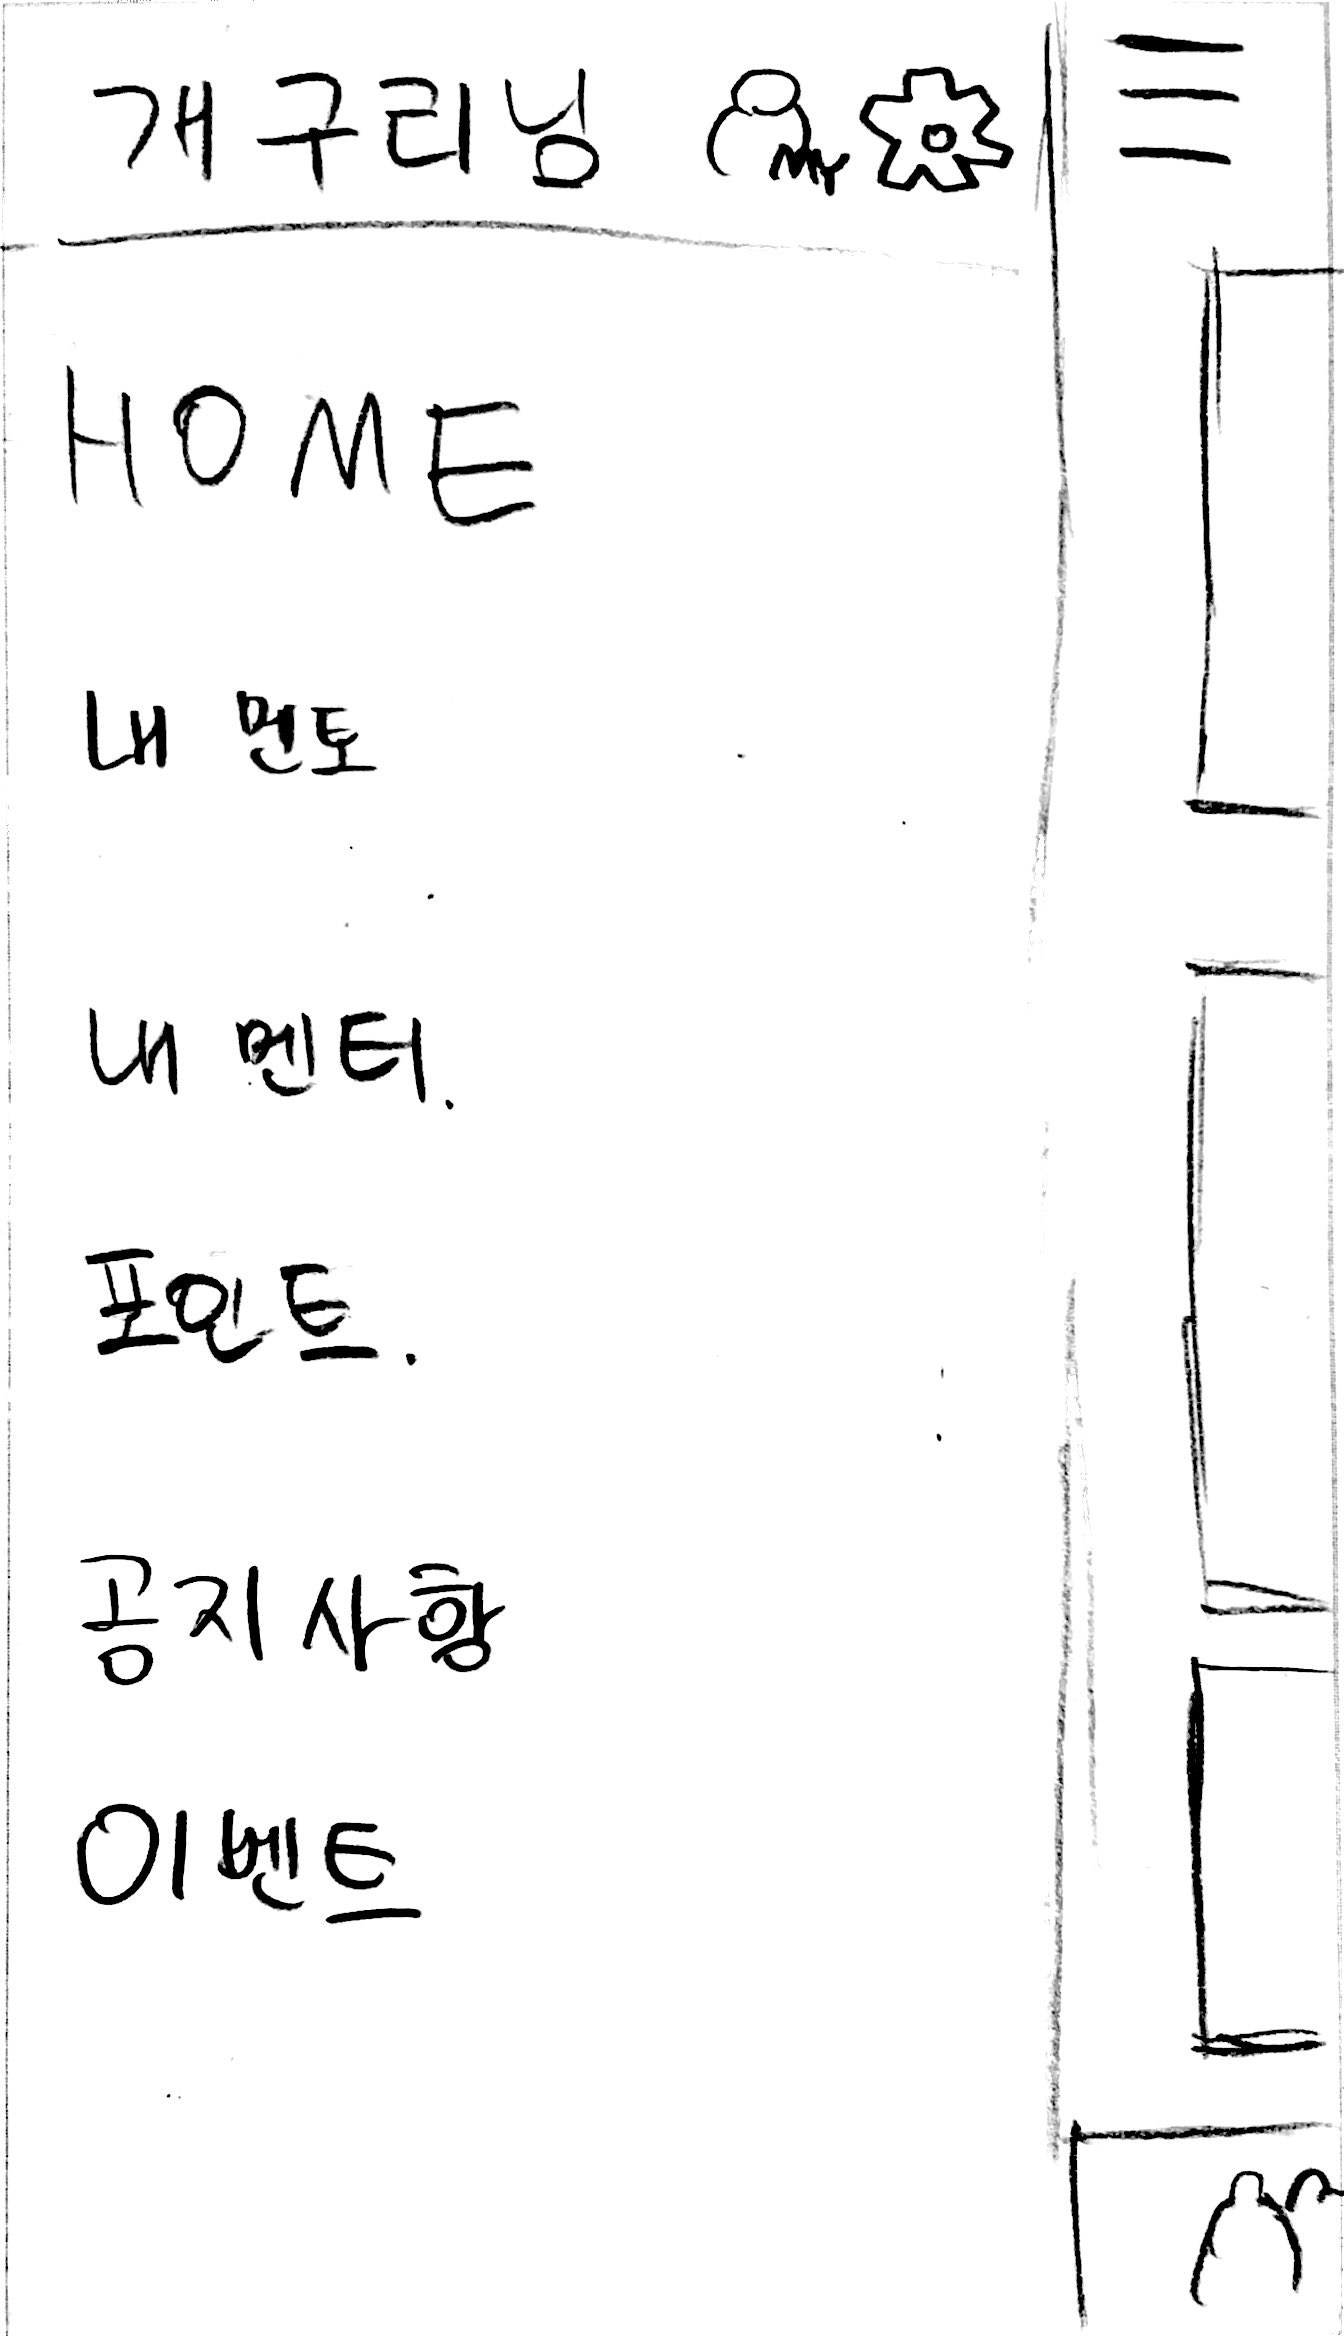 개구리님 MY
HOME
내 멘토
내 멘티.
포인트.
공지사항
이벤트